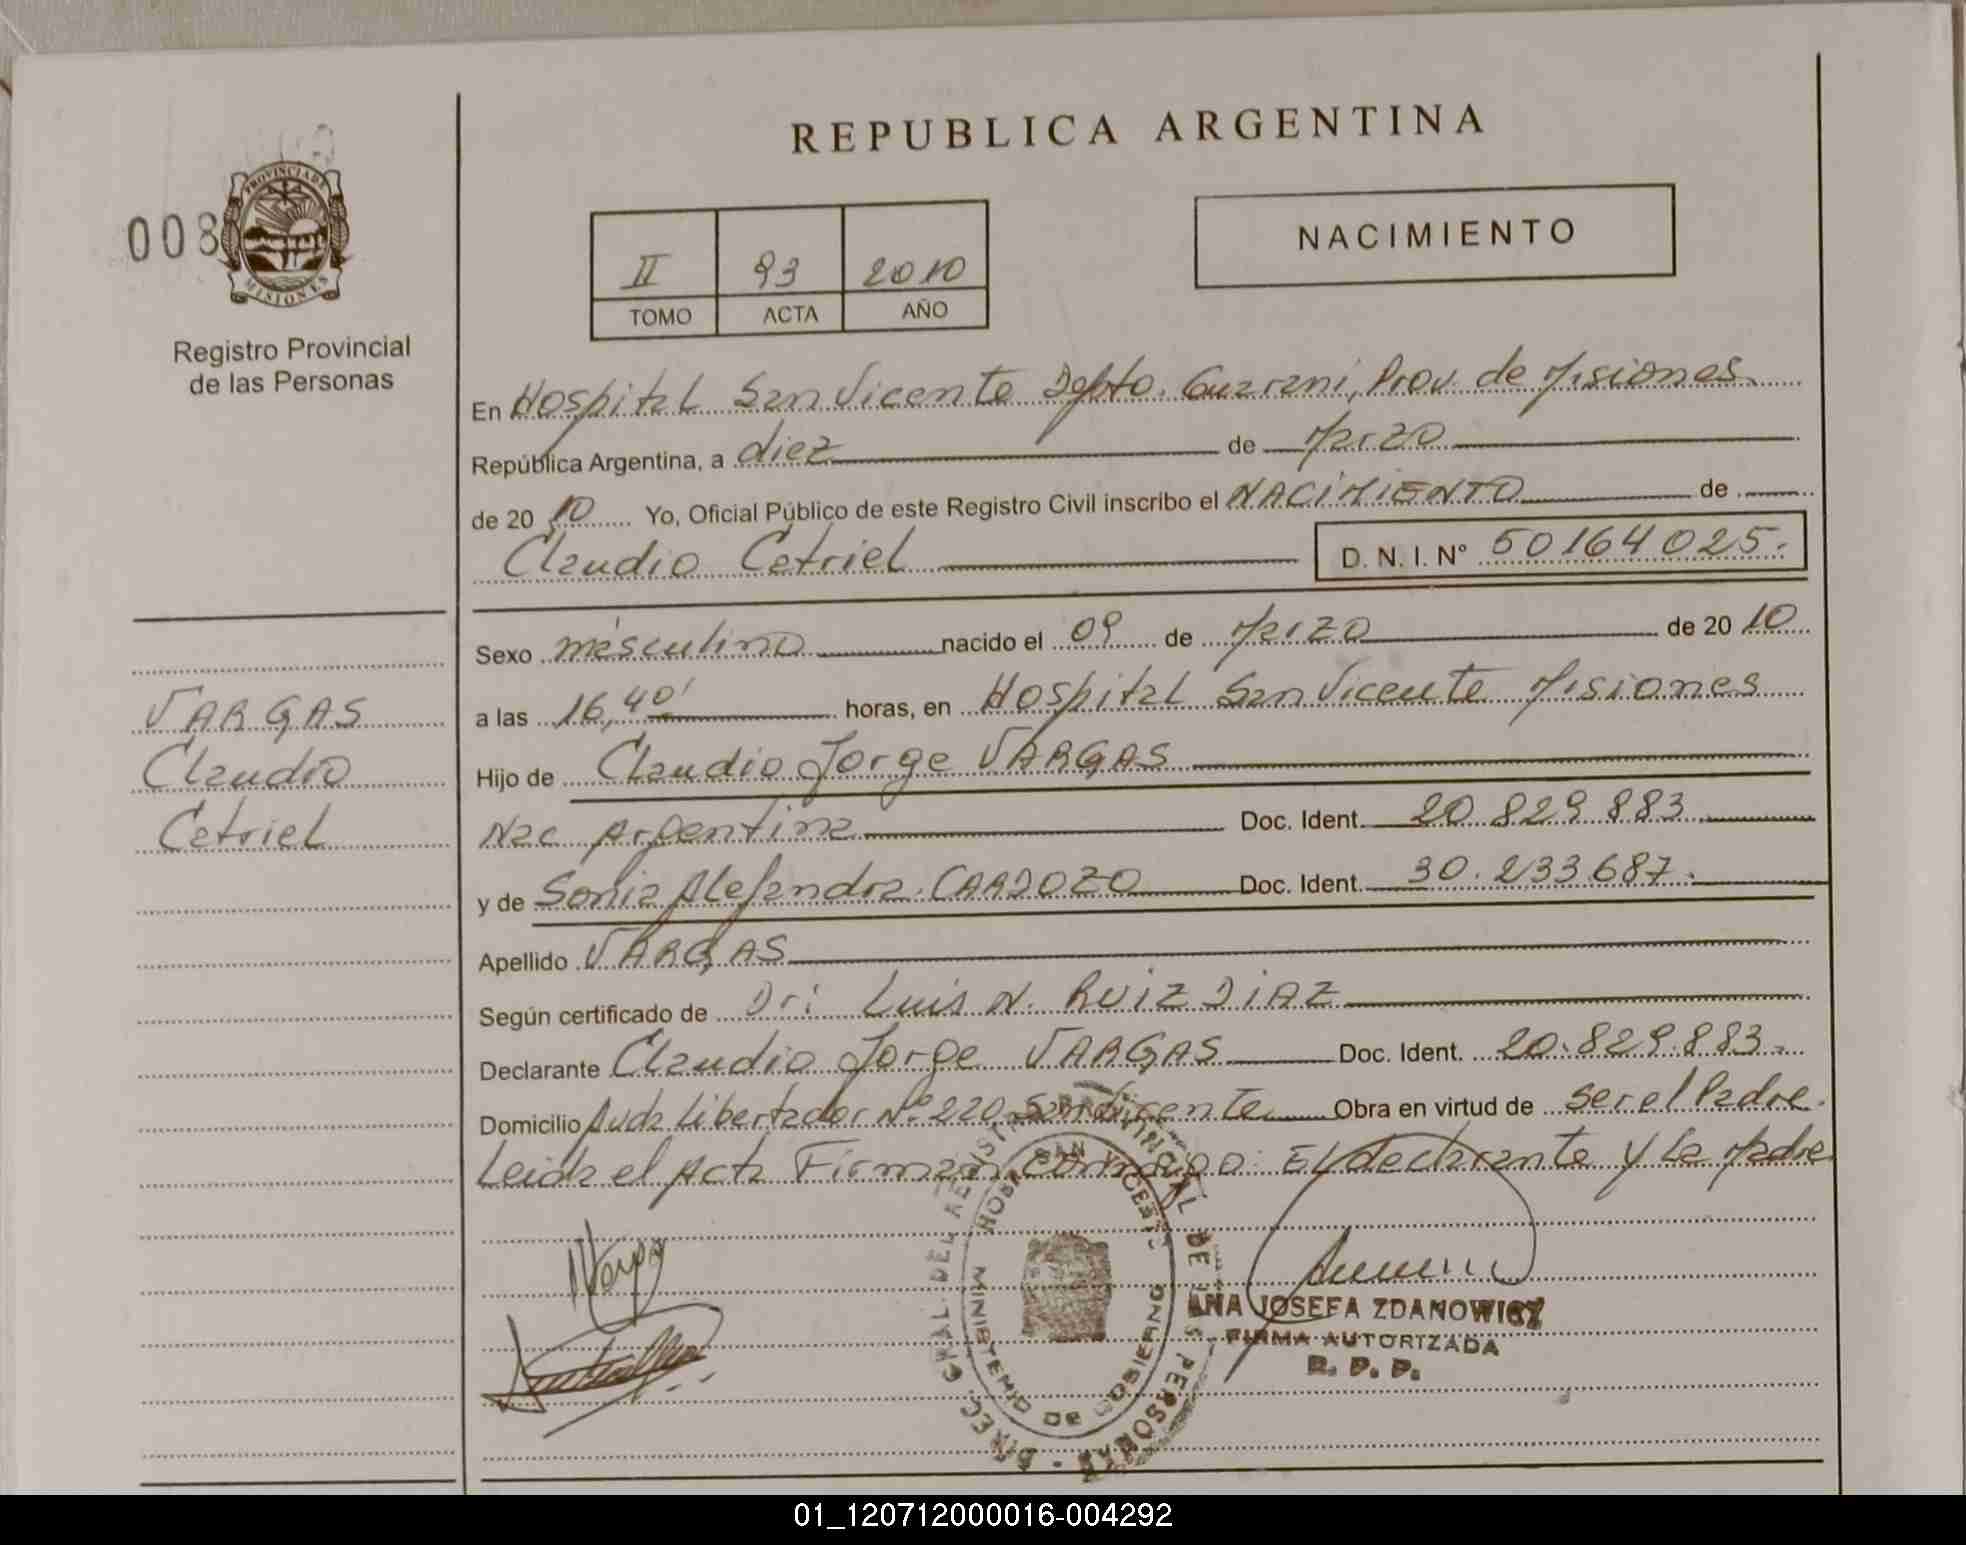 REPUBLICA ARGENTINA
008
PROVINCIA DE
MISIONES
Registro Provincial
de las Personas
II 93 2010
TOMO ACTA AÑO
NACIMIENTO
En Hospital San Vicente Dpto. Guarani, Prov. de Misiones
República Argentina, a diez de Marzo
de 20 10 Yo, Oficial Público de este Registro Civil inscribo el NACIMIENTO de
Claudio Cetriel D. N. I. N° 50164025.
Sexo masculino nacido el 09 de Marzo de 20 10
a las 16,40' horas, en Hospital San Vicente Misiones
Hijo de Claudio Jorge VARGAS
Nac Argentina Doc. Ident. 20.829.883
y de Sonia Alejandra CARDOZO Doc. Ident. 30.233.687.
Apellido VARGAS
Según certificado de Dr: Luis N. RUIZ DIAZ
Declarante Claudio Jorge VARGAS Doc. Ident. 20.829.883.
Domicilio Avda Libertador Nº 220, San Vicente Obra en virtud de ser el Padre.
Leida el Acta Firman conmigo: El declarante y La Madre
VARGAS
Claudio
Cetriel
DIREC. GRAL. DEL REGISTRO PROVINCIAL DE LAS PERSONAS
SAN VICENTE
MINISTERIO DE GOBIERNO
ANA JOSEFA ZDANOWICZ
FIRMA AUTORIZADA
R. P. P.
01_120712000016-004292